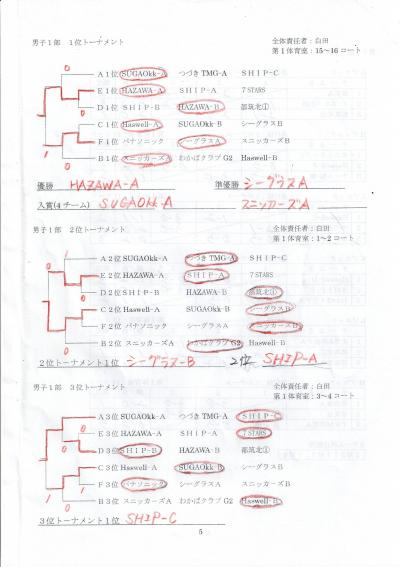 男子1部 1位トーナメント 全体責任者：白田
第1体育室：15～16コート
0
A1位 SUGAOkk-A つづきTMG-A SHIP-C
E1位 HAZAWA-A SHIP-A 7STARS
1
D1位 SHIP-B HAZAWA-B 都筑北①
C1位 Haswell-A SUGAOkk-B シーグラスB
F1位 パナソニック シーグラスA スニッカーズB
1
B1位 スニッカーズA わかばクラブG2 Haswell-B
0
優勝 HAZAWA-A 準優勝 シーグラスA
入賞(4チーム) SUGAOkk-A スニッカーズA
男子1部 2位トーナメント 全体責任者：白田
第1体育室：1～2コート
0
A2位 SUGAOkk-A つづきTMG-A SHIP-C
E2位 HAZAWA-A SHIP-A 7STARS
1
D2位 SHIP-B HAZAWA-B 都筑北①
C2位 Haswell-A SUGAOkk-B シーグラスB
F2位 パナソニック シーグラスA スニッカーズB
B2位 スニッカーズA わかばクラブG2 Haswell-B
0
2位トーナメント1位 シーグラス-B 2位 SHIP-A
男子1部 3位トーナメント 全体責任者：白田
第1体育室：3～4コート
1
A3位 SUGAOkk-A つづきTMG-A SHIP-C
E3位 HAZAWA-A SHIP-A 7STARS
0
D3位 SHIP-B HAZAWA-B 都筑北①
C3位 Haswell-A SUGAOkk-B シーグラスB
F3位 パナソニック シーグラスA スニッカーズB
B3位 スニッカーズA わかばクラブG2 Haswell-B
3位トーナメント1位 SHIP-C
5